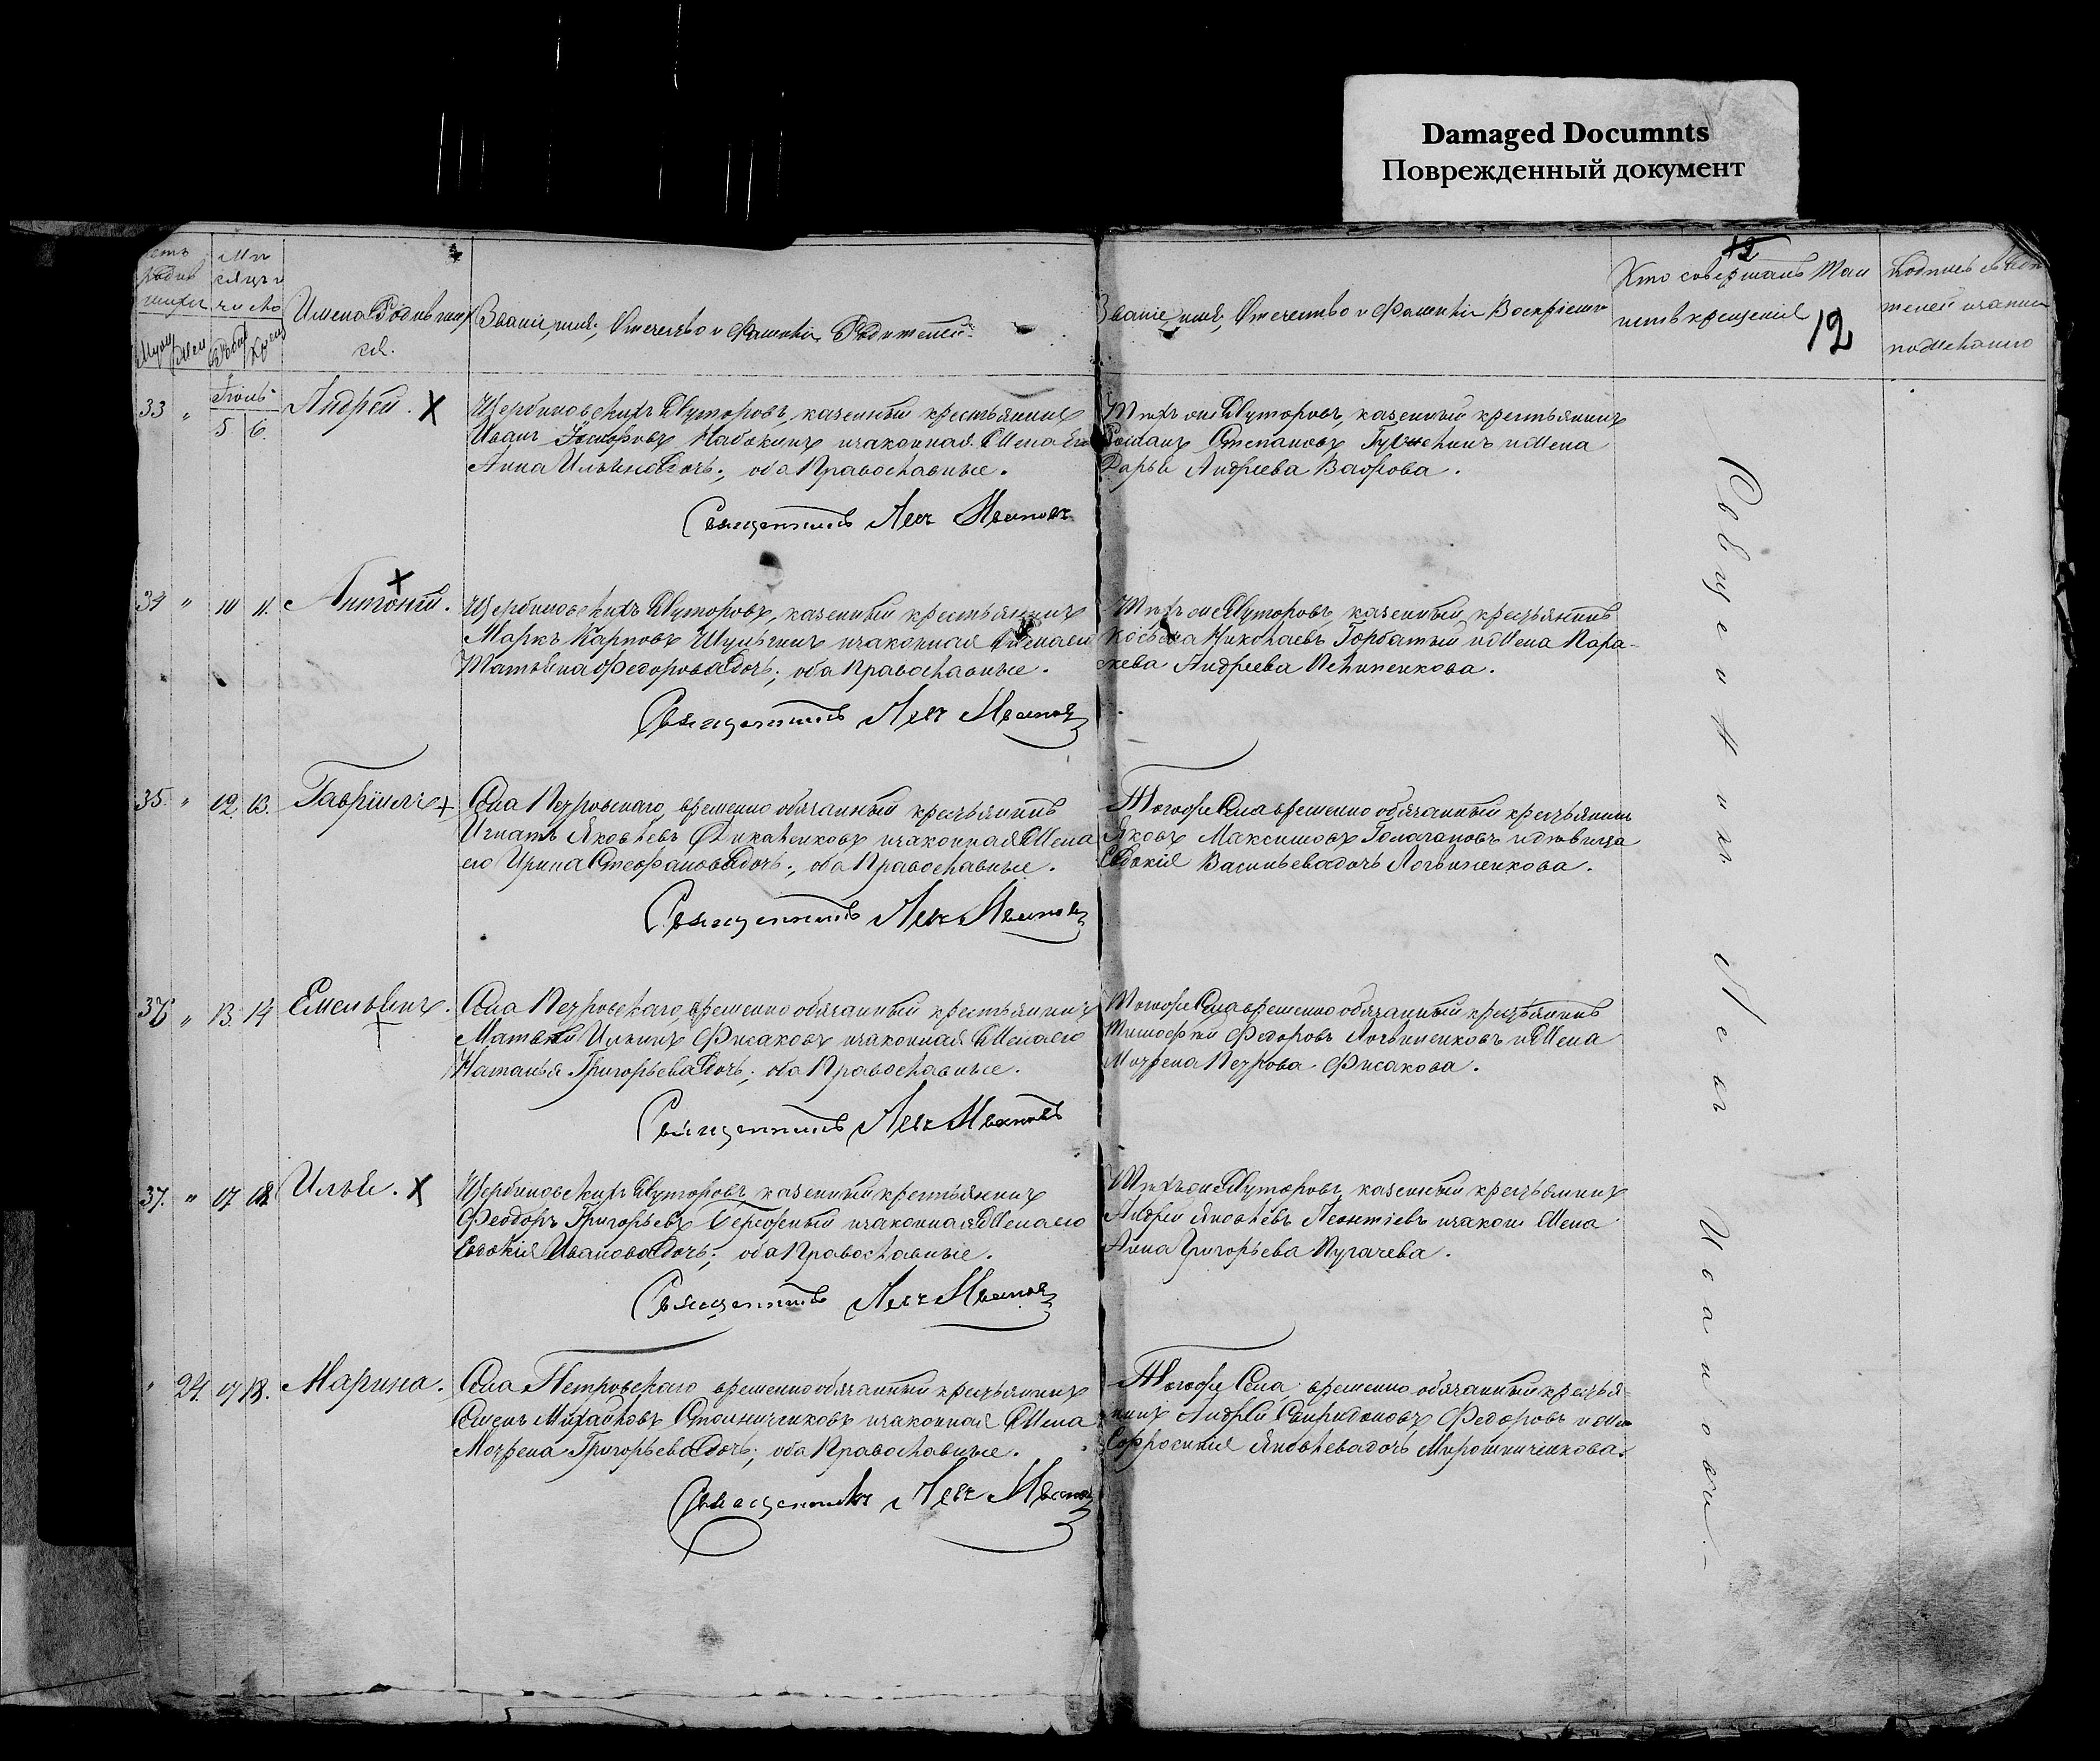 Damaged Documnts
Поврежденный документ
12
Имена Родивших
ся.
Званіе, имя, Отечество и Фамилія Родителей.
Званіе, имя, Отечество и Фамилія Воспріем
Кто совершалъ Таи
нство крещенія
12
число
Іюнь
33 " 5. 6. Андрей. X
Щербиновскихъ Хуторовъ, казенный крестьянинъ
Иванъ Набокинъ и законная Жена его
Анна Ильина Дочь; оба Православные.
Священникъ Левъ Ивановъ
Тѣхъ же Хуторовъ, казенный крестьянинъ
Романъ Степановъ и Жена
Дарья Андреева
34 " 10 11. Антоній.
Щербиновскихъ Хуторовъ, казенный крестьянинъ
Маркъ Карповъ Шульгинъ и законная Жена его
Татьяна Федорова Дочь; оба Православные.
Священникъ Левъ Ивановъ
Тѣхъ же Хуторовъ, казенный крестьянинъ
Косьма Николаевъ Горбатый и Жена Пара-
скева Андреева
35. " 12. 13. Гавріилъ
Села Петровскаго, временно обязанный крестьянинъ
Игнатъ Яковлевъ и законная Жена
его Ирина Стефанова Дочь; оба Православные.
Священникъ Левъ Ивановъ
Тогоже Села временно обязанный крестьянинъ
Яковъ Максимовъ и дѣвица
Евдокія Васильева дочь Логвиненкова.
36 " 13. 14 Емельянъ.
Села Петровскаго, временно обязанный крестьянинъ
Матвѣй Ильинъ Фисаковъ и законная Жена его
Наталья Григорьева Дочь; оба Православные.
Священникъ Левъ Ивановъ
Тогоже Села временно обязанный крестьянинъ
Тимофей Федоровъ Логвиненковъ и Жена
Мотрена Петрова Фисакова.
37. " 17 18. Илья. X
Щербиновскихъ Хуторовъ казенный крестьянинъ
Феодоръ Григорьевъ Бережный и законная Жена его
Евдокія Иванова Дочь; оба Православные.
Священникъ Левъ Ивановъ
Тѣхъ же Хуторовъ, казенный крестьянинъ
Андрей Яковлевъ Леонтіевъ и закон. Жена
Анна Григорьева Пугачева.
" 24. 17 18. Марина.
Села Петровскаго временно обязанный крестьянинъ
Семенъ Михайловъ и законная Жена
Мотрена Григорьева Дочь; оба Православные.
Священникъ Левъ Ивановъ
Тогоже Села временно обязанный крестья-
нинъ Андрей Спиридоновъ Федоровъ и
Ефросинія Яковлева дочь Мирошниченкова.
Священникъ Левъ Ивановъ.